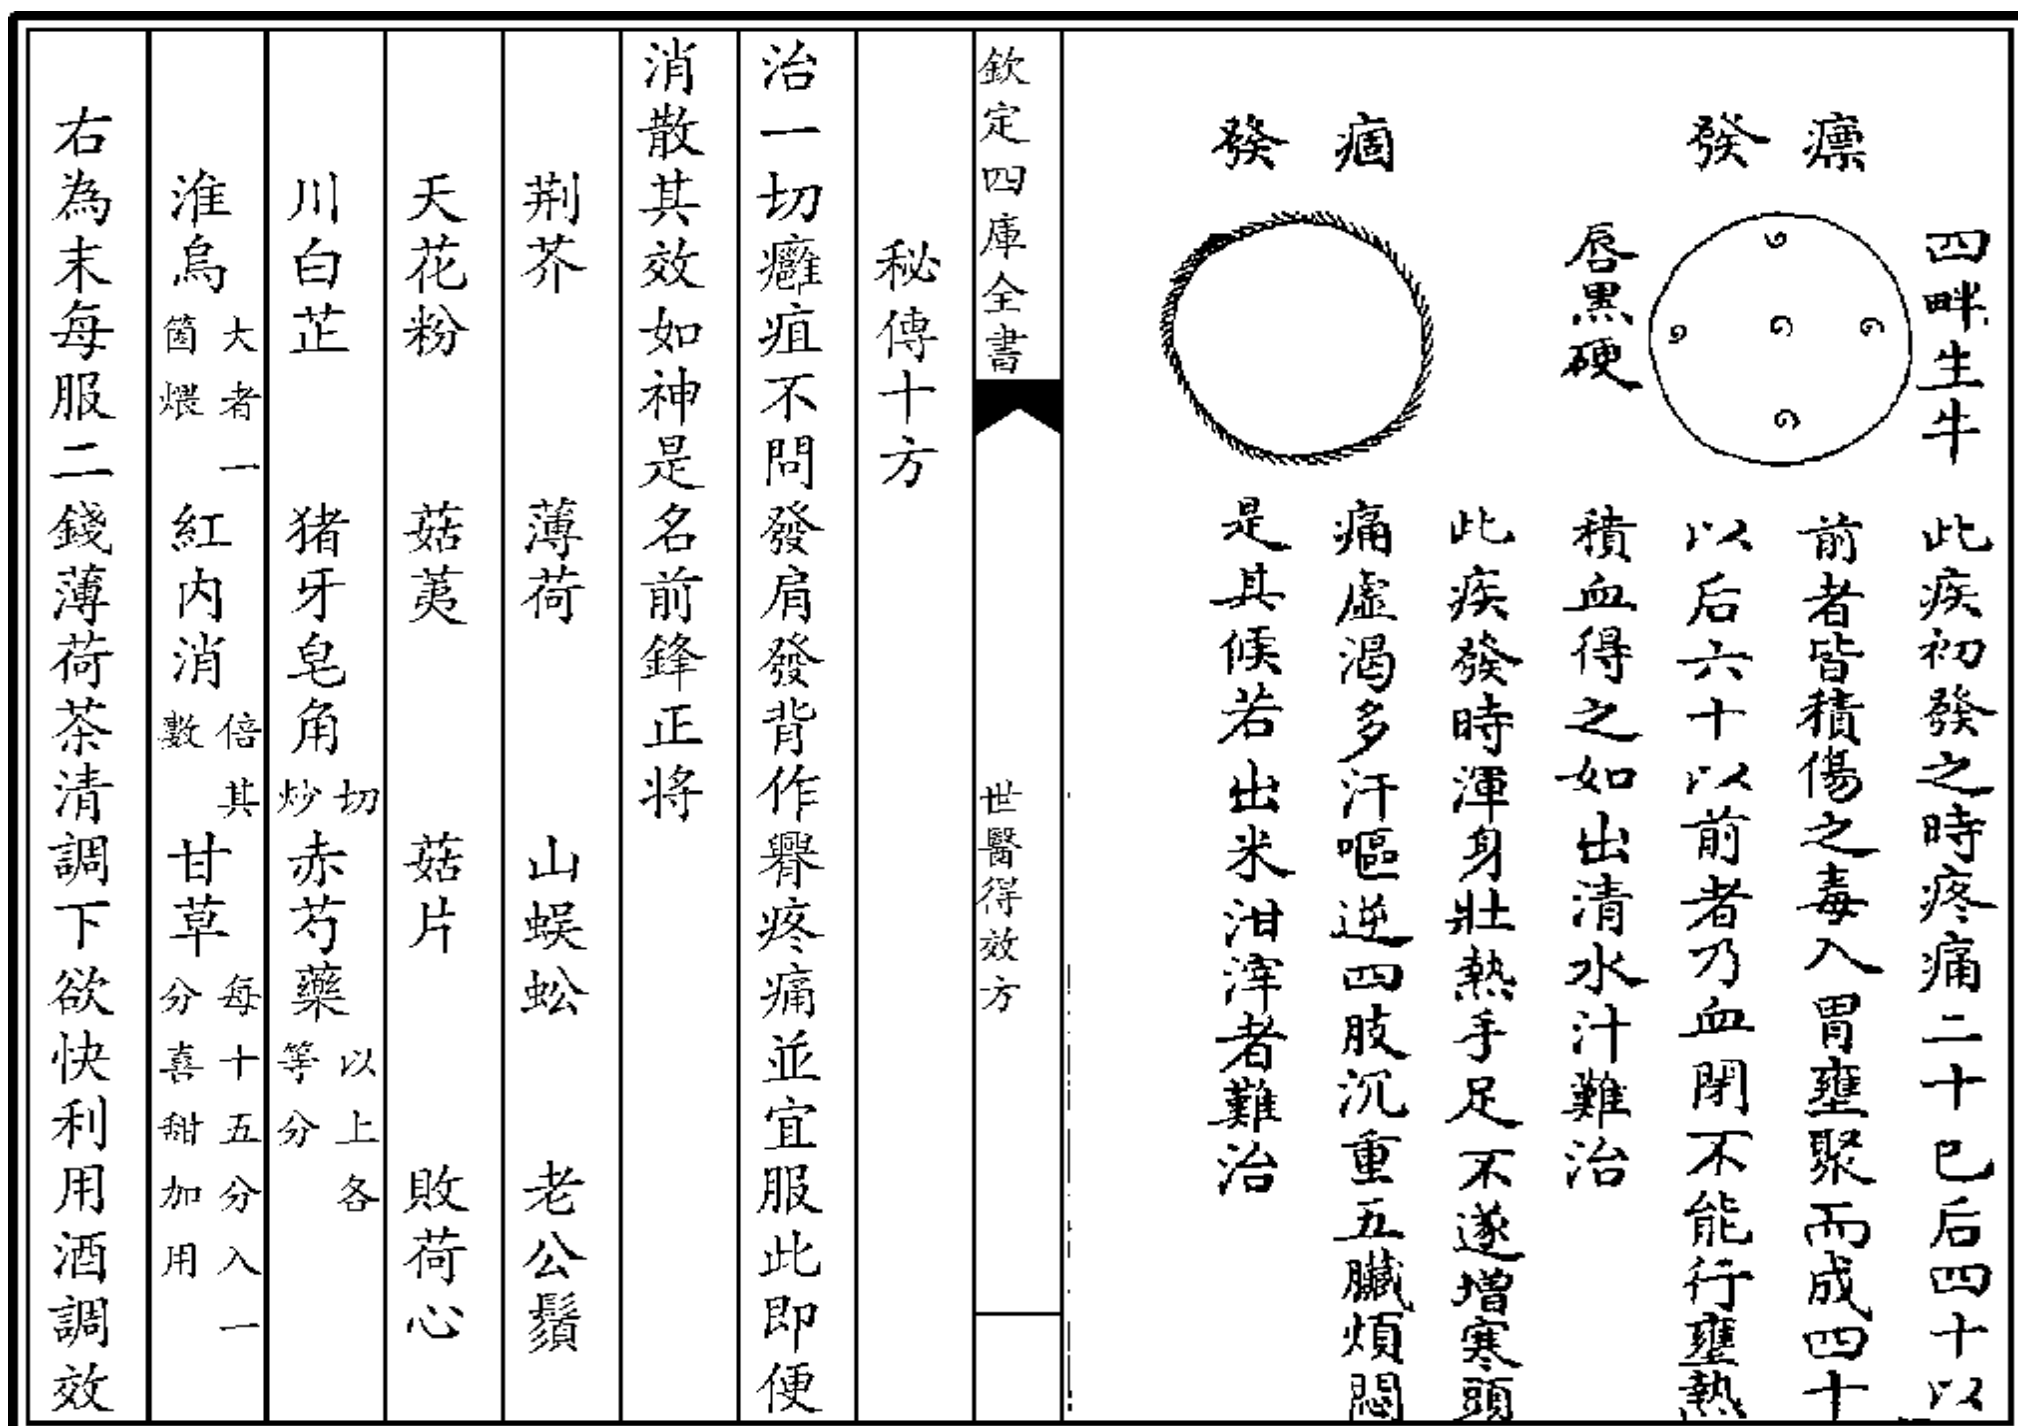 瘭發
四畔生牛
唇黑硬
此疾初發之時疼痛二十巳后四十以
前者皆積傷之毒入胃壅聚而成四十
以后六十以前者乃血閉不能行壅熱
積血得之如出清水汁難治
痼發
此疾發時渾身壯熱手足不遂增寒頭
痛虛渴多汗嘔逆四肢沉重五臟煩悶
是其候若出米泔滓者難治
欽定四庫全書 世醫得效方
秘傳十方
治一切癰疽不問發肩發背作臖疼痛並宜服此即便
消散其效如神是名前鋒正将
荆芥 薄荷 山蜈蚣 老公鬚
天花粉 菇荑 菇片 敗荷心
川白芷 猪牙皂角切炒 赤芍藥以上各等分
淮烏大者一箇煨 紅内消倍其數 甘草每十五分入一分喜甜加用
右為末每服二錢薄荷茶清調下欲快利用酒調效